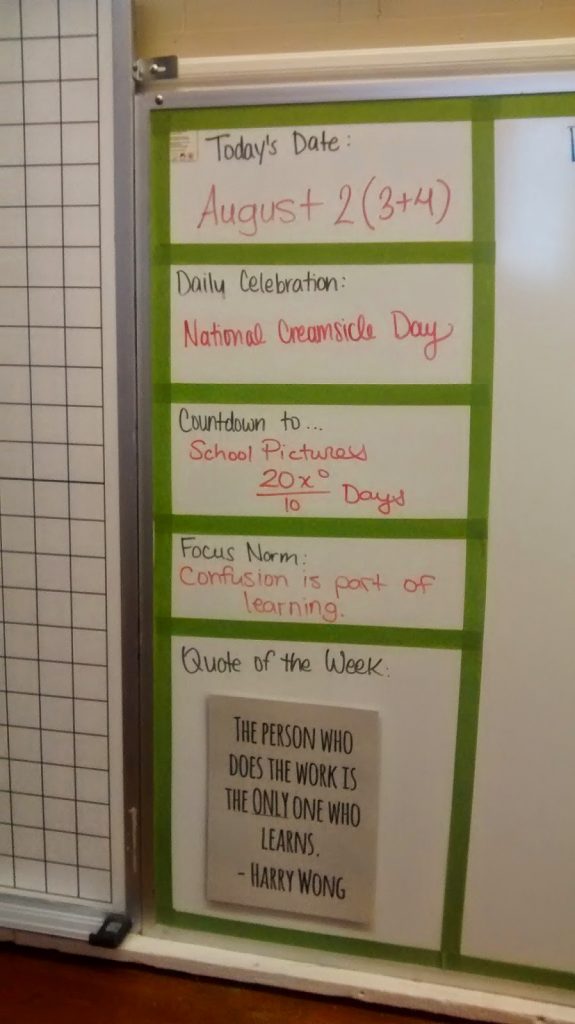 Today's Date:
August 2(3+4)
Daily Celebration:
National Creamsicle Day
Countdown to...
School Pictures
20x⁰
10
Days
Focus Norm:
Confusion is part of
learning.
Quote of the Week:
THE PERSON WHO
DOES THE WORK IS
THE ONLY ONE WHO
LEARNS.
- HARRY WONG